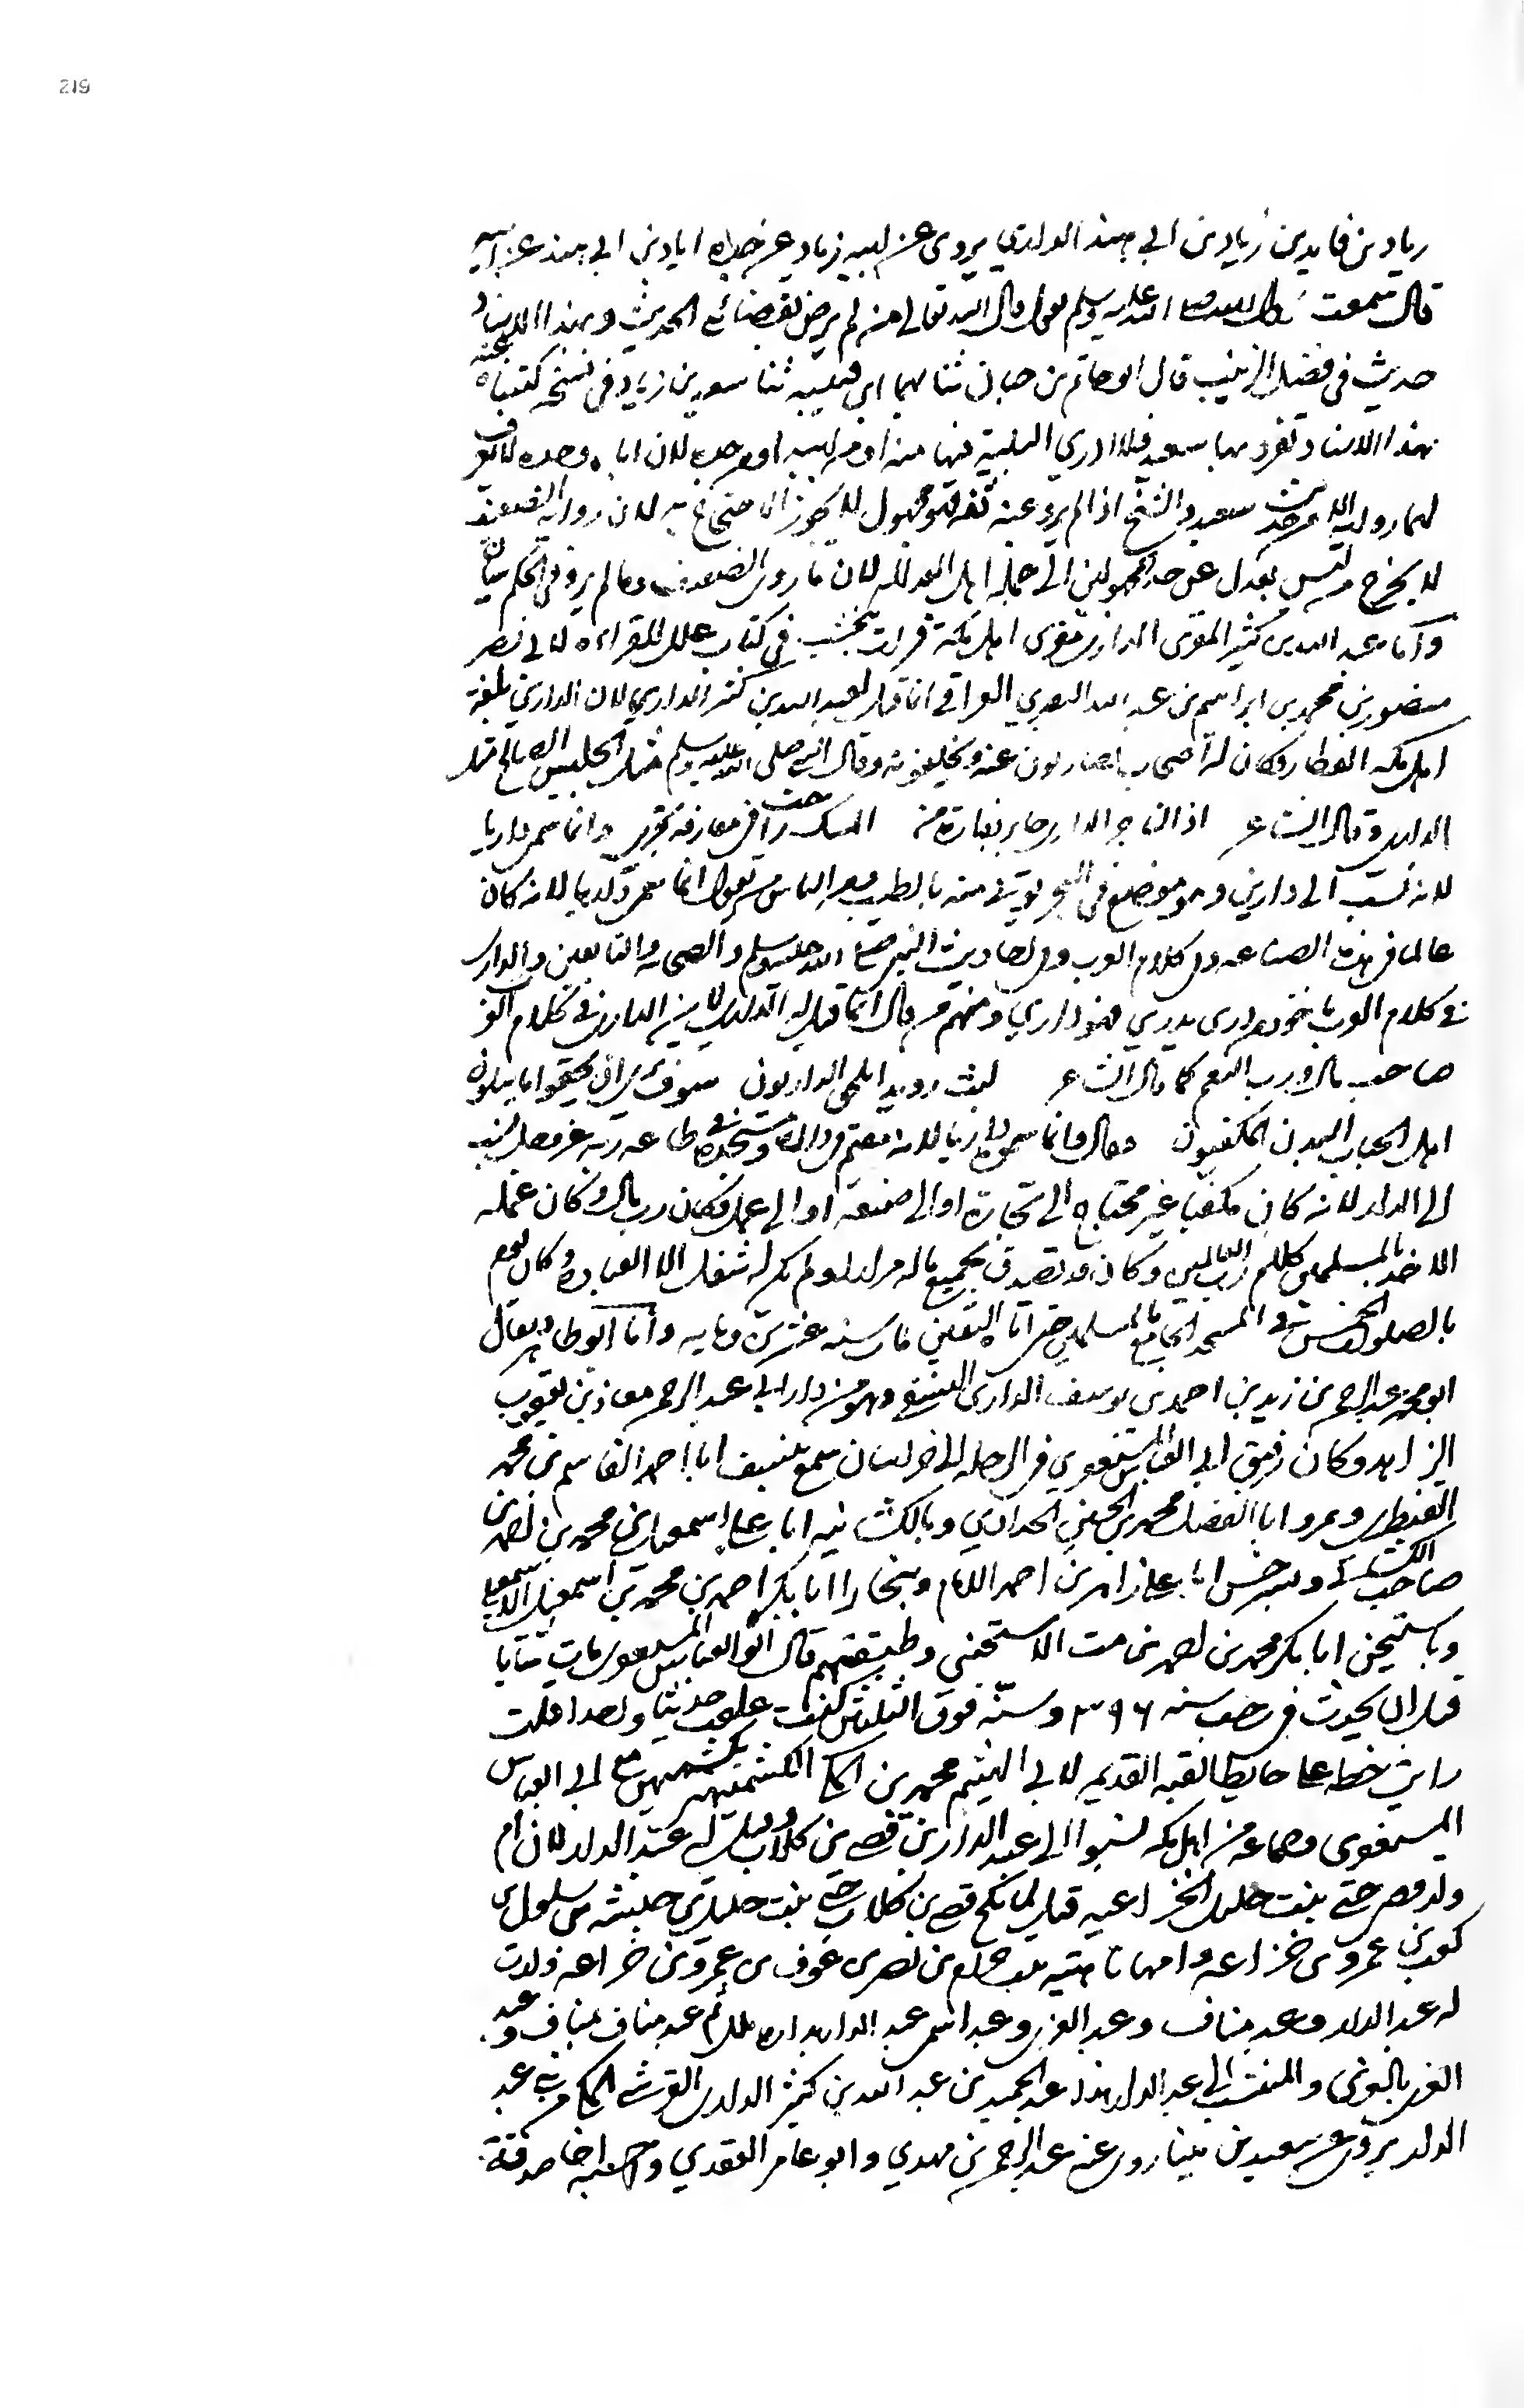 219
زياد بن فايد بن زياد بن ابي هند الداري يروى عن ابيه زياد عن جده اياد بن ابي هند عن ابيه
قال سمعت رسول الله صلى الله عليه وسلم يقول قال الله تعالى من لم يرض بقضائي الحديث وبهذا الاسناد
حديث في فضل الزبيب قال ابو حاتم بن حبان ثنا بهما ابن قتيبه ثنا سعيد بن زياد في نسخه كتبناها عنه
بهذا الاسناد تفرد بها سعيد فلا ادري البلية فيها منه او من ابيه او جده لان اباه وجده لا يعرف
لهما رواية الا من حديث سعيد والشيخ اذا لم يرو عنه ثقه فهو مجهول لا يجوز الاحتجاج به لان رواية الضعيف
لا يخرج من ليس بعدل عن حد المجهولين الى جملة اهل العدالة لان ما روى الضعيف وما لم يرو في الحكم سيان
واما عبد الله بن كثير المقرى الدارى مقرى اهل مكة قرات بنخشب في كتاب علل القراءه لابي نصر
منصور بن محمد بن ابراهيم بن عبد الله العراقي انما قيل لعبد الله بن كثير الداري لان الدارين بلغة
اهل مكه العطار وكان له اصحاب داريون عنه وقال النبي صلى الله عليه وسلم مثل الجليس الصالح مثل
الدارى وقال الشاعر اذا التاجر الدارى جاء بفارة من المسك راحت في مفارقه تجري وانما سمى داريا
لانه نسب الى دارين وهو موضع في البحر يوتى منه بالطيب ومن الناس من يقول انما سمى داريا لانه كان
عالما في هذه الصناعه وفي كلام العرب وفي احاديث النبي صلى الله عليه وسلم والصحابه والتابعين والدارى
في كلام العرب ماخوذ من درى يدري فهو داري ومنهم من قال انما قيل له الدارى لان الدارى في كلام العرب
صاحب مال ورب النعم كما قال الشاعر لبث رويدا يلحق الداريون سوف ترى ان يلحقوا ما يبلون
اهل الجباب البدن المكفيون وقال وانما سموه داريا لانه مقيم في داره في طاعه ربه عز وجل فنسب
الى الدار لانه كان مكفيا غير محتاج الى تجارة او الى صنعه او الى عمل فكان رب مال وكان عمله
الاخذ بالمسلمين كلام رب العالمين وكان قد تصدق بجميع ماله مرارا ولم يكن له شغل الا العباده وكان يوم
بالصلوات الخمس في المسجد الجامع بالمسلمين حتى اتاه اليقين مات سنه عشرين ومايه واما ابو طاهر يقال
ابو محمد عبد الرحمن بن زيد بن احمد بن يوسف الدارى النسفي وهو من دار ابي عبد الرحمن معاذ بن يعقوب
الزاهد وكان رفيق ابي العباس المستغفري في الرحله الى خراسان سمع بنسف ابا احمد القاسم بن محمد
القنطرى وبمرو ابا الفضل محمد بن الحسين الحدادي وبالكشانيه ابا علي اسمعيل بن محمد بن احمد بن
صاحب الكشاني وبسرخس ابا علي زاهر بن احمد الامام وببخارا ابا بكر احمد بن محمد بن اسمعيل الاسمعيلي
وباستيجن ابا بكر محمد بن احمد بن مت الاستيجني وطبقتهم قال ابو العباس المستغفرى مات شابا
قبل ان يحدث في رجب سنه ٣٩٦ وسنه فوق الثلثين كتبت عنه حديثا واحدا قلت
رايت خطه على حايط القبه القديمه لابي الهيثم محمد بن المكي الكشميهني بكشميهن مع ابي العباس
المستغفرى وجماعه من اهل مكه نسبوا الى عبد الدار بن قصي بن كلاب وقيل له عبد الدار لان ام
ولد قصى حبى بنت حليل الخزاعيه قيل لما نكح قصي بن كلاب حبى بنت حليل بن حبشيه بن سلول بن
كعب بن عمرو بن خزاعه وامها بن نصر بن عوف بن عمرو بن خزاعه ولدت
له عبد الدار وعبد مناف وعبد العزى وعبدا سمى عبد الدار بداره تلك ثم عبد مناف بمناف وعبد
العزى بالعزى والمنتسب الى عبد الدار هذا عبد الحميد بن عبد الله بن كثير الدارى القرشي المكي من بني عبد
الدار يروى عن سعيد بن مينا روى عنه عبد الرحمن بن مهدي وابو عامر العقدي واخا صدقة